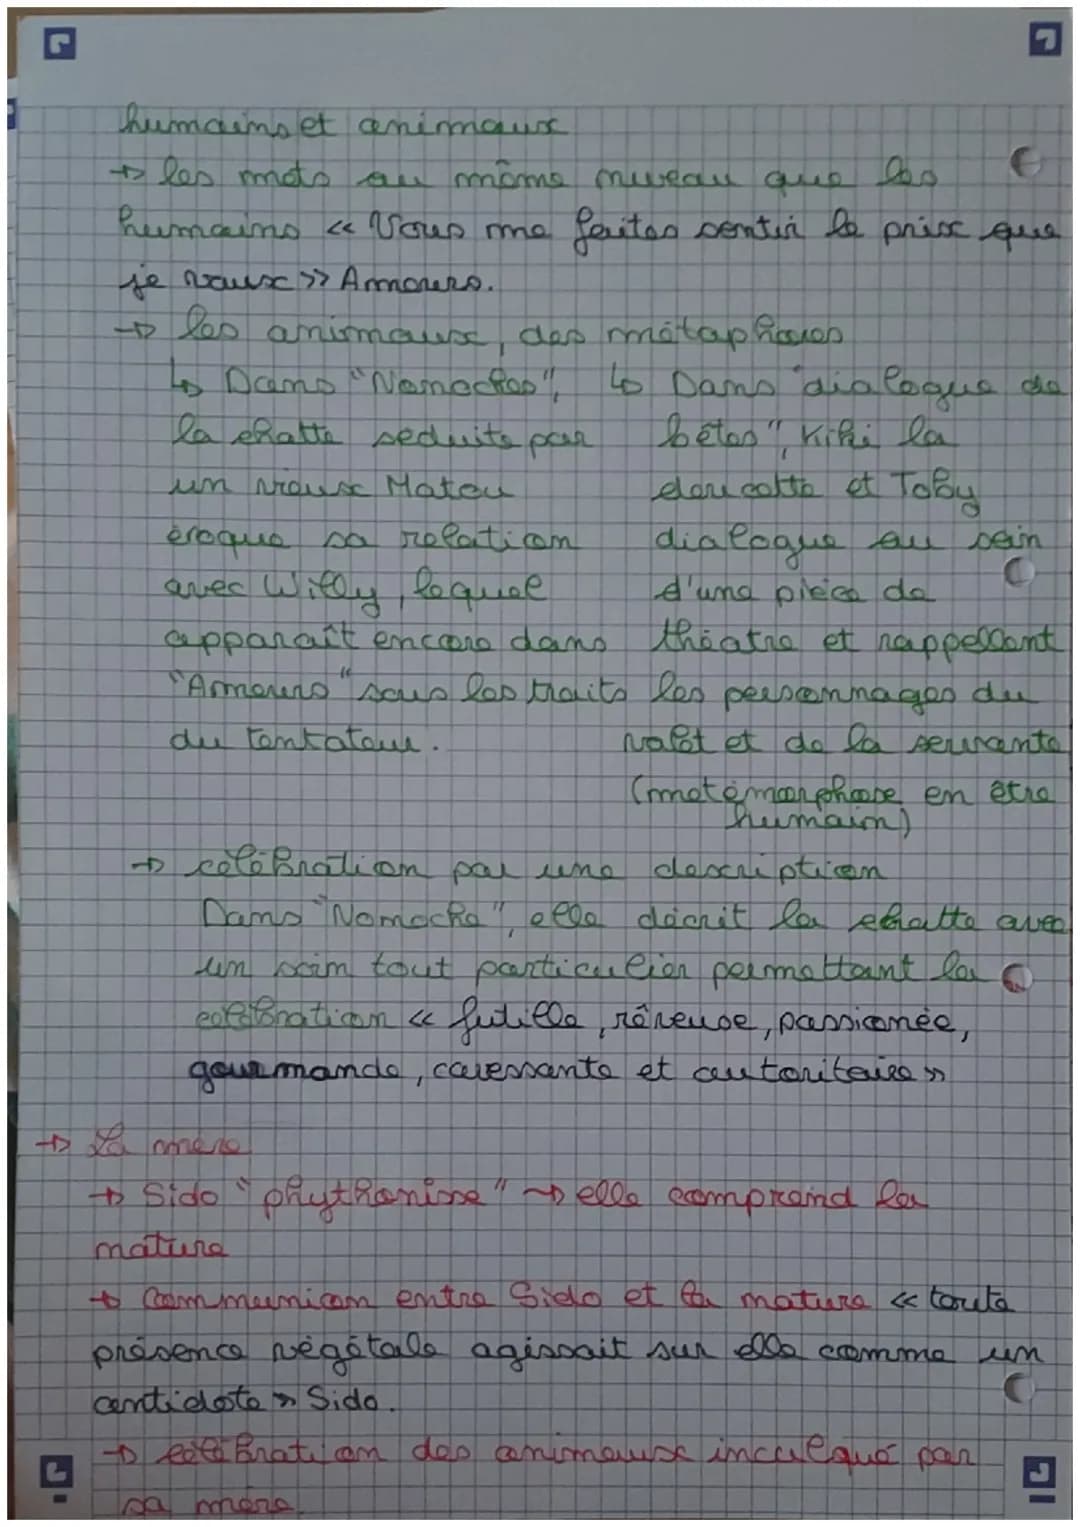 humains et animaux
→ les mots au même niveau que les
humains << Vous me faites sentir le prix que
je vaux >> Amours.
→ les animaux, des métaphores
↳ Dans "Nonoches",
la chatte seduite par
un vieux Matou
évoque sa relation
avec Willy, lequel
apparaît encore dans
"Amours" sous les traits
du tentateur.
↳ Dans "dialogue de
bêtes", Kiki la
doucette et Toby
dialogue au sein
d'une pièce de
théatre et rappellant
les personnages du
valet et de la servante
(metémorphose en être
humain)
→ célébration par une description
Dans "Nonoche", elle décrit la chatte avec
un soin tout particulier permettant la
célébration << futille, rêveuse, passionée,
gourmande, caressante et autoritaire >>
→ La mère
→ Sido "phythonisse" → elle comprend la
nature
→ Communion entre Sido et la nature << toute
présence végétale agissait sur elle comme un
antidote >> Sido.
→ célébration des animaux inculqué par
sa mère